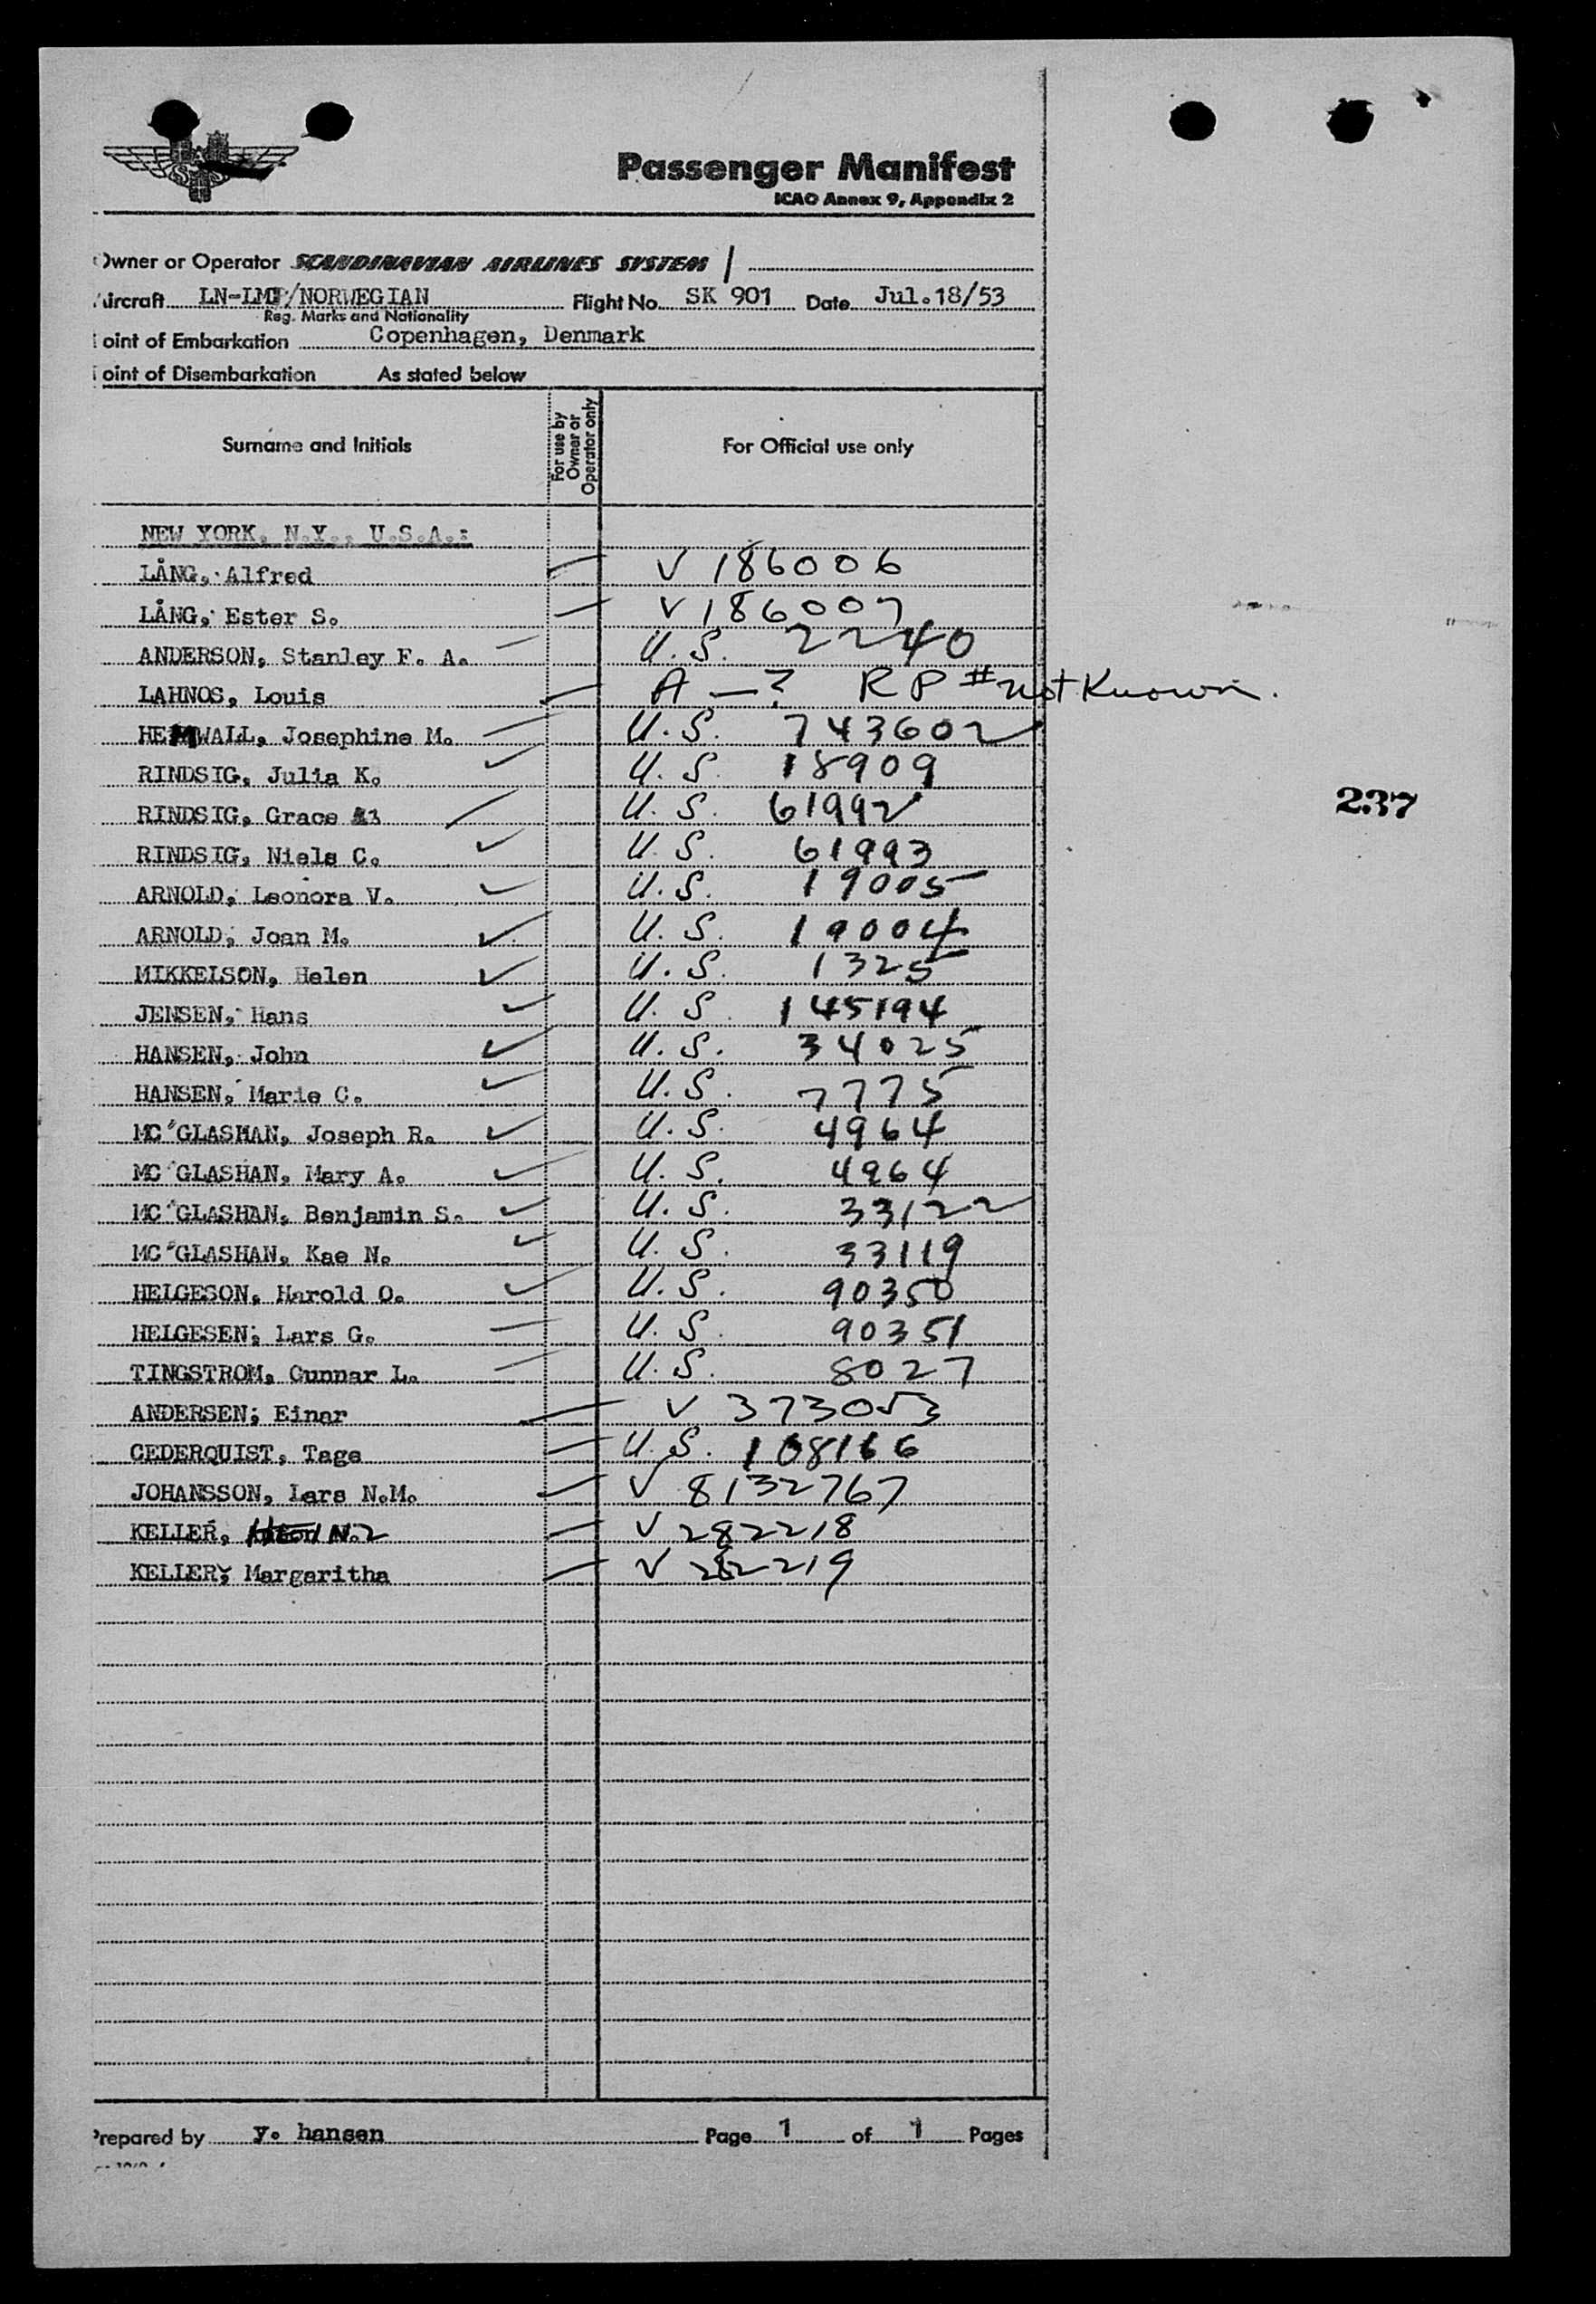 Passenger Manifest
ICAO Annex 9, Appendix 2
Owner or Operator SCANDINAVIAN AIRLINES SYSTEM /
Aircraft LN-LMP/NORWEGIAN Flight No. SK 901 Date Jul.18/53
Reg. Marks and Nationality
oint of Embarkation Copenhagen, Denmark
oint of Disembarkation As stated below
Surname and Initials For use by Owner or Operator only For Official use only
NEW YORK, N.Y., U.S.A.:
LÅNG, Alfred V 186006
LÅNG, Ester S. V 186007
ANDERSON, Stanley F. A. U.S. 2240
LAHNOS, Louis A —? RP # not Known.
HEMWALL, Josephine M. U.S. 743602
RINDSIG, Julia K. U.S. 18909
RINDSIG, Grace U.S. 61992
237
RINDSIG, Niels C. U.S. 61993
ARNOLD, Leonora V. U.S. 19005
ARNOLD, Joan M. U.S. 19004
MIKKELSON, Helen U.S. 1325
JENSEN, Hans U.S. 145194
HANSEN, John U.S. 34025
HANSEN, Marie C. U.S. 7775
MC GLASHAN, Joseph R. U.S. 4964
MC GLASHAN, Mary A. U.S. 4964
MC GLASHAN, Benjamin S. U.S. 33122
MC GLASHAN, Kae N. U.S. 33119
HELGESON, Harold O. U.S. 90350
HELGESEN, Lars G. U.S. 90351
TINGSTROM, Gunnar L. U.S. 8027
ANDERSEN, Einar V 373053
CEDERQUIST, Tage U.S. 108166
JOHANSSON, Lars N.M. V 8132767
KELLER, V 282218
KELLER, Margaritha V 282219
Prepared by y. hansen Page 1 of 1 Pages